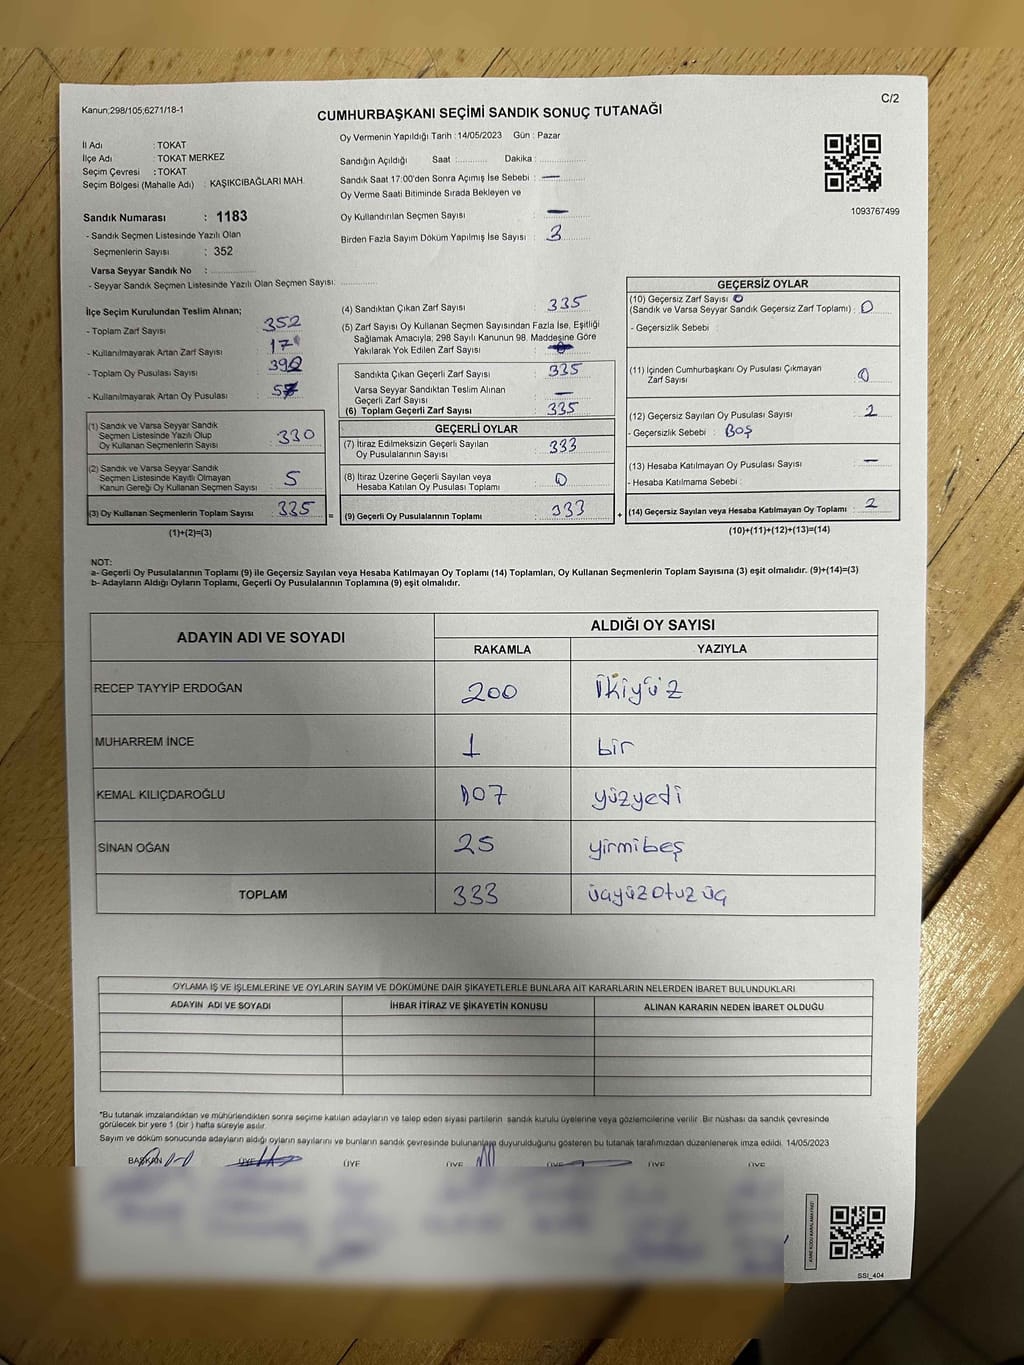 Kanun;298/105;6271/18-1
C/2
CUMHURBAŞKANI SEÇİMİ SANDIK SONUÇ TUTANAĞI
Oy Vermenin Yapıldığı Tarih :14/05/2023 Gün : Pazar
İl Adı : TOKAT
İlçe Adı : TOKAT MERKEZ
Seçim Çevresi : TOKAT
Seçim Bölgesi (Mahalle Adı) : KAŞIKCIBAĞLARI MAH.
Sandığın Açıldığı Saat :........... Dakika :................
Sandık Saat 17:00'den Sonra Açımış İse Sebebi : —
Oy Verme Saati Bitiminde Sırada Bekleyen ve
Oy Kullandırılan Seçmen Sayısı : —
Birden Fazla Sayım Döküm Yapılmış İse Sayısı : 3
1093767499
Sandık Numarası : 1183
- Sandık Seçmen Listesinde Yazılı Olan
Seçmenlerin Sayısı : 352
Varsa Seyyar Sandık No : ................
- Seyyar Sandık Seçmen Listesinde Yazılı Olan Seçmen Sayısı: ................
İlçe Seçim Kurulundan Teslim Alınan;
- Toplam Zarf Sayısı : 352
- Kullanılmayarak Artan Zarf Sayısı : 17
- Toplam Oy Pusulası Sayısı :
- Kullanılmayarak Artan Oy Pusulası :
(1) Sandık ve Varsa Seyyar Sandık
Seçmen Listesinde Yazılı Olup
Oy Kullanan Seçmenlerin Sayısı : 330
(2) Sandık ve Varsa Seyyar Sandık
Seçmen Listesinde Kayıtlı Olmayan
Kanun Gereği Oy Kullanan Seçmen Sayısı : 5
(3) Oy Kullanan Seçmenlerin Toplam Sayısı : 335 =
(1)+(2)=(3)
(4) Sandıktan Çıkan Zarf Sayısı : 335
(5) Zarf Sayısı Oy Kullanan Seçmen Sayısından Fazla İse, Eşitliği
Sağlamak Amacıyla; 298 Sayılı Kanunun 98. Maddesine Göre
Yakılarak Yok Edilen Zarf Sayısı :
Sandıkta Çıkan Geçerli Zarf Sayısı : 335
Varsa Seyyar Sandıktan Teslim Alınan
Geçerli Zarf Sayısı : —
(6) Toplam Geçerli Zarf Sayısı : 335
GEÇERLİ OYLAR
(7) İtiraz Edilmeksizin Geçerli Sayılan
Oy Pusulalarının Sayısı : 333
(8) İtiraz Üzerine Geçerli Sayılan veya
Hesaba Katılan Oy Pusulası Toplamı : 0
(9) Geçerli Oy Pusulalarının Toplamı : 333 +
GEÇERSİZ OYLAR
(10) Geçersiz Zarf Sayısı
(Sandık ve Varsa Seyyar Sandık Geçersiz Zarf Toplamı) : 0
- Geçersizlik Sebebi :
(11) İçinden Cumhurbaşkanı Oy Pusulası Çıkmayan
Zarf Sayısı : 0
(12) Geçersiz Sayılan Oy Pusulası Sayısı : 2
- Geçersizlik Sebebi : BOŞ
(13) Hesaba Katılmayan Oy Pusulası Sayısı : —
- Hesaba Katılmama Sebebi :
(14) Geçersiz Sayılan veya Hesaba Katılmayan Oy Toplamı : 2
(10)+(11)+(12)+(13)=(14)
NOT:
a- Geçerli Oy Pusulalarının Toplamı (9) ile Geçersiz Sayılan veya Hesaba Katılmayan Oy Toplamı (14) Toplamları, Oy Kullanan Seçmenlerin Toplam Sayısına (3) eşit olmalıdır. (9)+(14)=(3)
b- Adayların Aldığı Oyların Toplamı, Geçerli Oy Pusulalarının Toplamına (9) eşit olmalıdır.
ADAYIN ADI VE SOYADI ALDIĞI OY SAYISI
RAKAMLA YAZIYLA
RECEP TAYYİP ERDOĞAN 200 ikiyüz
MUHARREM İNCE 1 bir
KEMAL KILIÇDAROĞLU 107 yüzyedi
SİNAN OĞAN 25 yirmibeş
TOPLAM 333 üçyüzotuzüç
OYLAMA İŞ VE İŞLEMLERİNE VE OYLARIN SAYIM VE DÖKÜMÜNE DAİR ŞİKAYETLERLE BUNLARA AİT KARARLARIN NELERDEN İBARET BULUNDUKLARI
ADAYIN ADI VE SOYADI İHBAR İTİRAZ VE ŞİKAYETİN KONUSU ALINAN KARARIN NEDEN İBARET OLDUĞU
*Bu tutanak imzalandıktan ve mühürlendikten sonra seçime katılan adayların ve talep eden siyasi partilerin sandık kurulu üyelerine veya gözlemcilerine verilir. Bir nüshası da sandık çevresinde
görülecek bir yere 1 (bir ) hafta süreyle asılır.
Sayım ve döküm sonucunda adayların aldığı oyların sayılarını ve bunların sandık çevresinde bulunanlara duyurulduğunu gösteren bu tutanak tarafımızdan düzenlenerek imza edildi. 14/05/2023
BAŞKAN ÜYE ÜYE ÜYE ÜYE ÜYE ÜYE
SSI_404